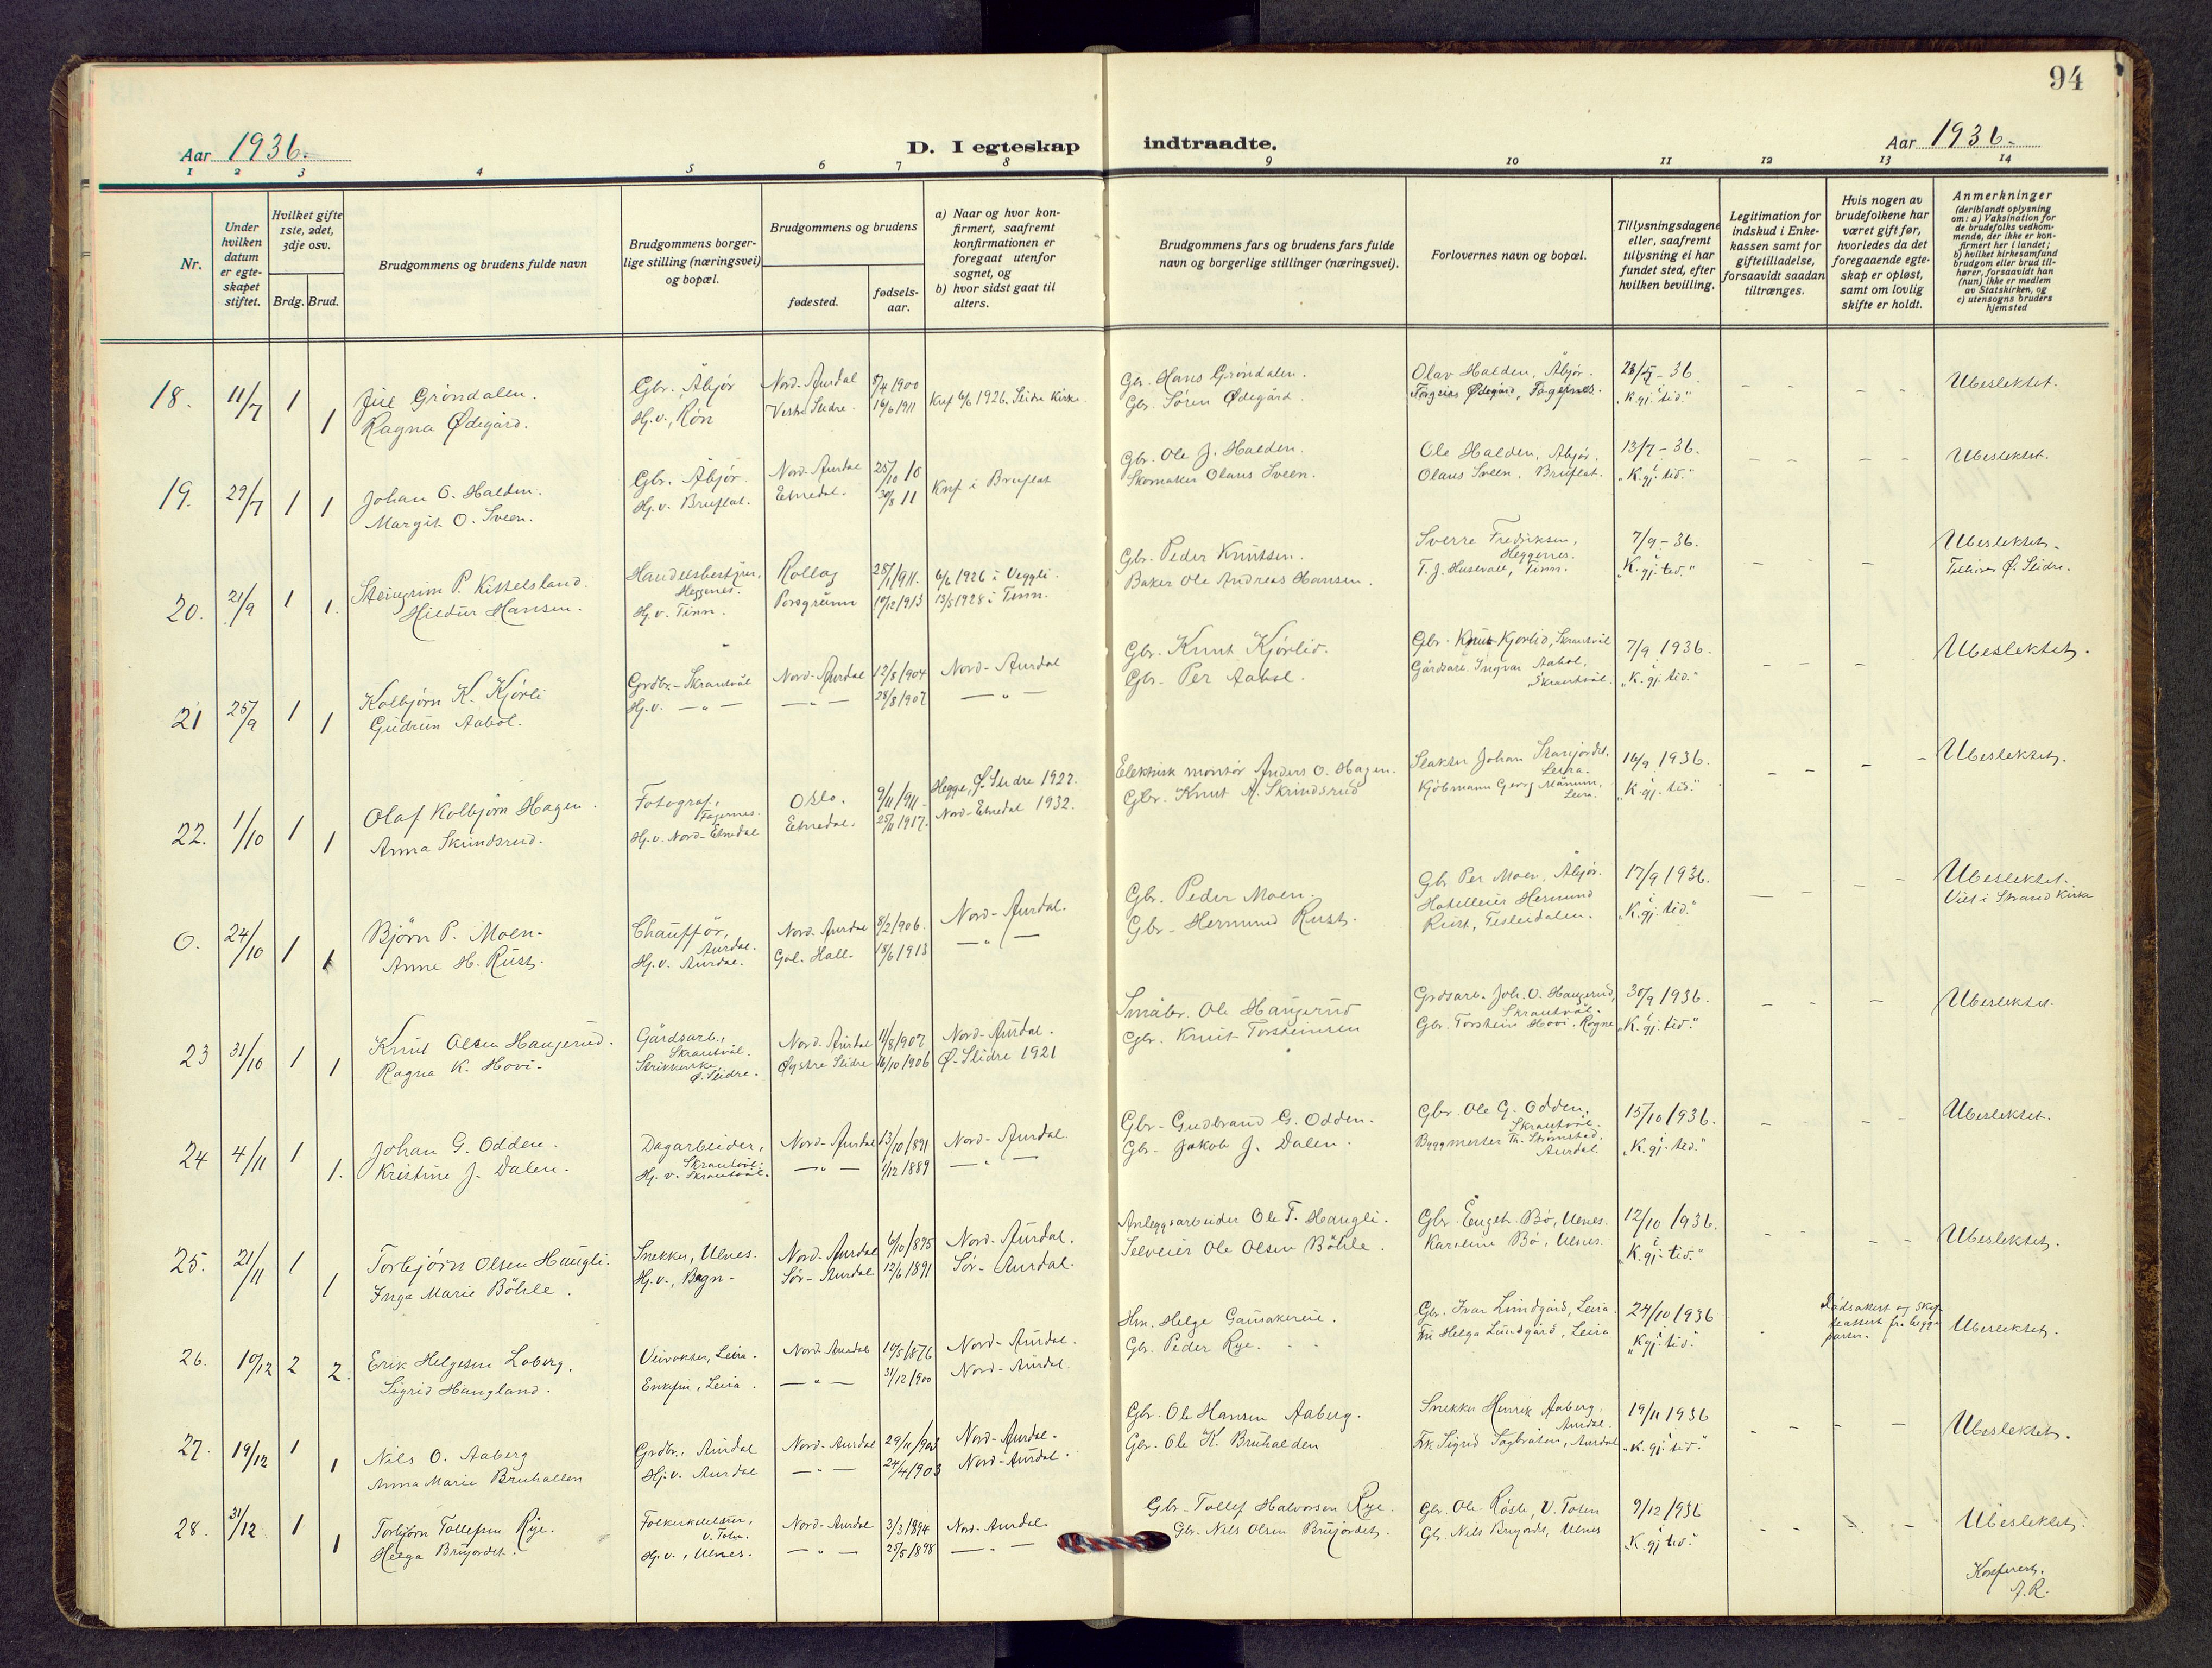 94
Aar 1936.
D. I egteskap indtraadte.
Aar 1936.
1 2 3 4 5 6 7 8 9 10 11 12 13 14
Nr.
Under hvilken datum er egteskapet stiftet.
Hvilket gifte 1ste, 2det, 3dje osv.
Brdg. Brud.
Brudgommens og brudens fulde navn
Brudgommens borgerlige stilling (næringsvei) og bopæl.
Brudgommens og brudens
fødested.
fødselsaar.
a) Naar og hvor konfirmert, saafremt konfirmationen er foregaat utenfor sognet, og
b) hvor sidst gaat til alters.
Brudgommens fars og brudens fars fulde navn og borgerlige stillinger (næringsvei).
Forlovernes navn og bopæl.
Tillysningsdagene eller, saafremt tillysning ei har fundet sted, efter hvilken bevilling.
Legitimation for indskud i Enkekassen samt for giftetilladelse, forsaavidt saadan tiltrænges.
Hvis nogen av brudefolkene har været gift før, hvorledes da det foregaaende egteskap er opløst, samt om lovlig skifte er holdt.
Anmerkninger (deriblandt oplysning om: a) Vaksination for de brudefolks vedkommende, der ikke er konfirmert her i landet; b) hvilket kirkesamfund brudgom eller brud tilhører, forsaavidt han (hun) ikke er medlem av Statskirken, og c) utensogns bruders hjemsted
18. 11/7 1 Grøndalen. Gbr. Åbjør Nord-Aurdal 5/4 1900 Gbr. Hans Grøndalen. Olav Halden, Åbjør. 36. Ubeslektet.
1 Ragna Ødegård. Hj.v., Røn Vestre Slidre. 16/6 1911 Knf 6/6 1926. Slidre Kirke. Gbr. Søren Ødegård. Ødegård, Fagernes. "K. gj. i tid."
19. 29/7 1 1 Johan O. Halden. Gbr. Åbjør. Nord-Aurdal 25/10 10 Knf i Bruflat Gbr. Ole J. Halden. Ole Halden, Åbjør. 13/7-36. Ubeslektet.
Margit O. Sveen. Hj.v. Bruflat. Etnedal. 30/8 11 Skomaker Olaus Sveen. Olaus Sveen, Bruflat. "K. gj. i tid."
20. 21/9 1 1. Steingrim P. Kittelsland. Handelsbestyrer, Heggenes. Rollag 28/1 1911. 6/6 1926 i Veggli. Gbr. Peder Knutsen. Sverre Fredriksen, Heggenes. 7/9-36. Ubeslektet.
Hildur Hansen. Hj.v. Tinn. Porsgrunn 10/12 1913 13/5 1928 i Tinn. Baker Ole Andreas Hansen. T. J. Husevall, Tinn. "K. gj. i tid." Tilhører Ø. Slidre.
21 25/9 1 1 Kolbjørn K. Kjørli Grdbr.-Skrautvål Nord-Aurdal 12/8 1904 Nord-Aurdal Gbr. Knut Kjørlid. Gbr. Knut Kjørlid, Skrautvål 7/9 1936. Ubeslektet.
Gudrun Aabol. Hj.v. — " — — " — 28/8 1907 — " — Gbr. Per Aabol. Gårdsarb. Ingvar Aabol, Skrautvål. "K. gj. i tid."
22. 1/10 1 1 Olaf Kolbjørn Hagen. Fotograf, Fagernes. Oslo. 9/11 1911. Hegge, Ø. Slidre 1927. Elektrisk montør Anders O. Hagen. Slakter Johan Leira. 16/9 1936. Ubeslektet.
Anna Skrindsrud. Hj.v. Nord-Etnedal Etnedal. 25/11 1917. Nord-Etnedal 1932. Gbr. Knut A. Skrindsrud Kjøbmann Georg Leira. "K. gj. i tid."
0. 24/10 1 1 Bjørn P. Moen. Chauffør, Aurdal. Nord-Aurdal 8/2 1906. Nord-Aurdal. Gbr. Peder Moen. Gbr. Per Moen, Åbjør. 17/9 1936. Ubeslektet.
Anne H. Rust. Hj.v. Aurdal. Gol. Hall. 18/6 1913 — " — Gbr. Hermund Rust. Hotelleier Hermund Rust, Tisleidalen. "K. gj. i tid." Viet i Strand Kirke
23 31/10 1 1 Knut Olsen Haugerud. Gårdsarb., Skrautvål. Nord-Aurdal 11/8 1907 Nord-Aurdal. Småbr. Ole Haugerud Grdsarb. Joh. O. Haugerud, Skrautvål. 30/9 1936. Ubeslektet.
Ragna K. Hovi. Strikkerske Ø. Slidre. Øystre Slidre 16/10 1906 Ø. Slidre 1921 Gbr. Knut Torsteinsen Gbr. Torstein Hovi, Rogne "K. gj. i tid."
24 4/11 1 1. Johan G. Odden. Dagarbeider, Skrautvål. Nord-Aurdal 13/10 1891 Nord-Aurdal. Gbr. Gudbrand G. Odden. Gbr. Ole G. Odden, Skrautvål. 15/10 1936. Ubeslektet.
Kristine J. Dalen. Hj.v. Skrautvål. — " — 1/12 1889 — " — Gbr. Jakob J. Dalen. Byggmester Th. Strømstad, Aurdal. "K. gj. i tid."
25. 21/11 1 1 Torbjørn Olsen Haugli. Snekker, Ulnes. Nord-Aurdal 6/10 1895 Nord-Aurdal. Anleggsarbeider Ole T. Haugli. Gbr. Engebr. Bø, Ulnes. 12/10 1936. Ubeslektet.
Inga Marie Böhle. Hj.v., Bagn. Sør-Aurdal 12/6 1891 Sør-Aurdal. Selveier Ole Olsen Böhle. Karoline Bø, Ulnes. "K. gj. i tid."
26. 10/12 2 2. Erik Helgesen Loberg. Veivokter, Leira. Nord-Aurdal 10/5 1876 Nord-Aurdal. Hm. Helge Gbr. Ivar Lundgård, Leira. 24/10 1936 Dødsattest og skifteattest fra begge parter. Ubeslektet.
Sigrid Haugland. Enkefru, Leira. — " — 31/12 1900 Nord-Aurdal. Gbr. Peder Rye. Fru Helga Lundgård, Leira "K. gj. i tid."
27. 19/12 1 1 Nils O. Aaberg Grdbr., Aurdal Nord-Aurdal 29/11 Nord-Aurdal. Gbr. Ole Hansen Aaberg. Snekker Henrik Aaberg, Aurdal. 19/11 1936 Ubeslektet.
Anna Marie Bruhallen Hj.v. Aurdal — " — 24/4 1903 Nord-Aurdal. Gbr. Ole K. Bruhalden Frk Sigrid Sagbråten, Aurdal "K. gj. i tid."
28. 31/12 1 1 Torbjørn Tollefsen Rye. V. Toten. Nord-Aurdal 3/3 1894 Nord-Aurdal. Gbr. Tollef Halvorsen Rye. Gbr. Ole V. Toten 9/12 1936 Ubeslektet.
Helga Brujordet. Hj.v., Ulnes. — " — 25/5 1898 — " — Gbr. Nils Olsen Brujordet. Gb. Nils Brujordet, Ulnes "K. gj. i tid."
Konferert.
A.R.